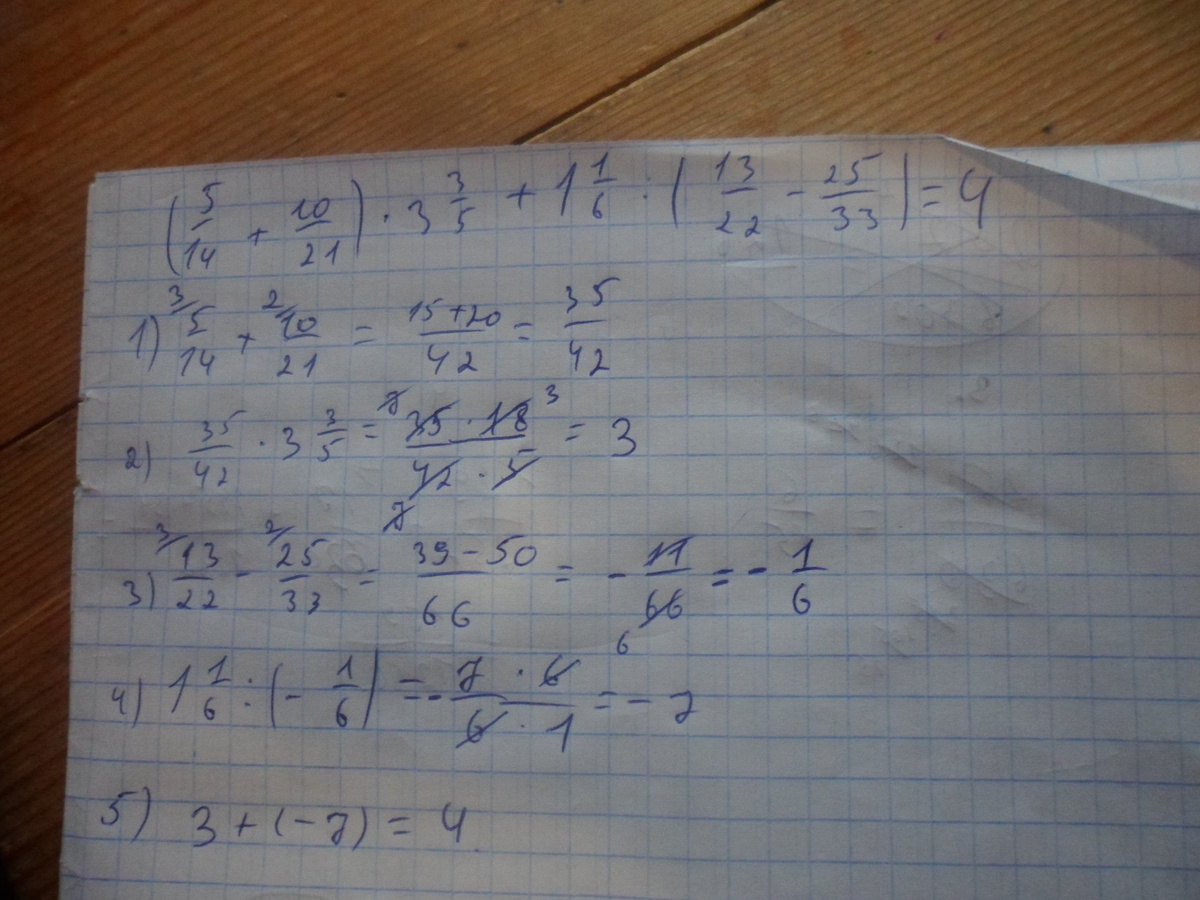 (5/14 + 10/21) · 3 3/5 + 1 1/6 : (13/22 - 25/33) = 4
1) 3/ 5/14 + 2/ 10/21 = 15+20/42 = 35/42
2) 35/42 · 3 3/5 = 7 35 · 18 3/42 · 5 7 = 3
3) 3/ 13/22 - 2/ 25/33 = 39-50/66 = - 11/66 6 = - 1/6
4) 1 1/6 : (- 1/6) = - 7 · 6/6 · 1 = - 7
5) 3 + (-7) = 4